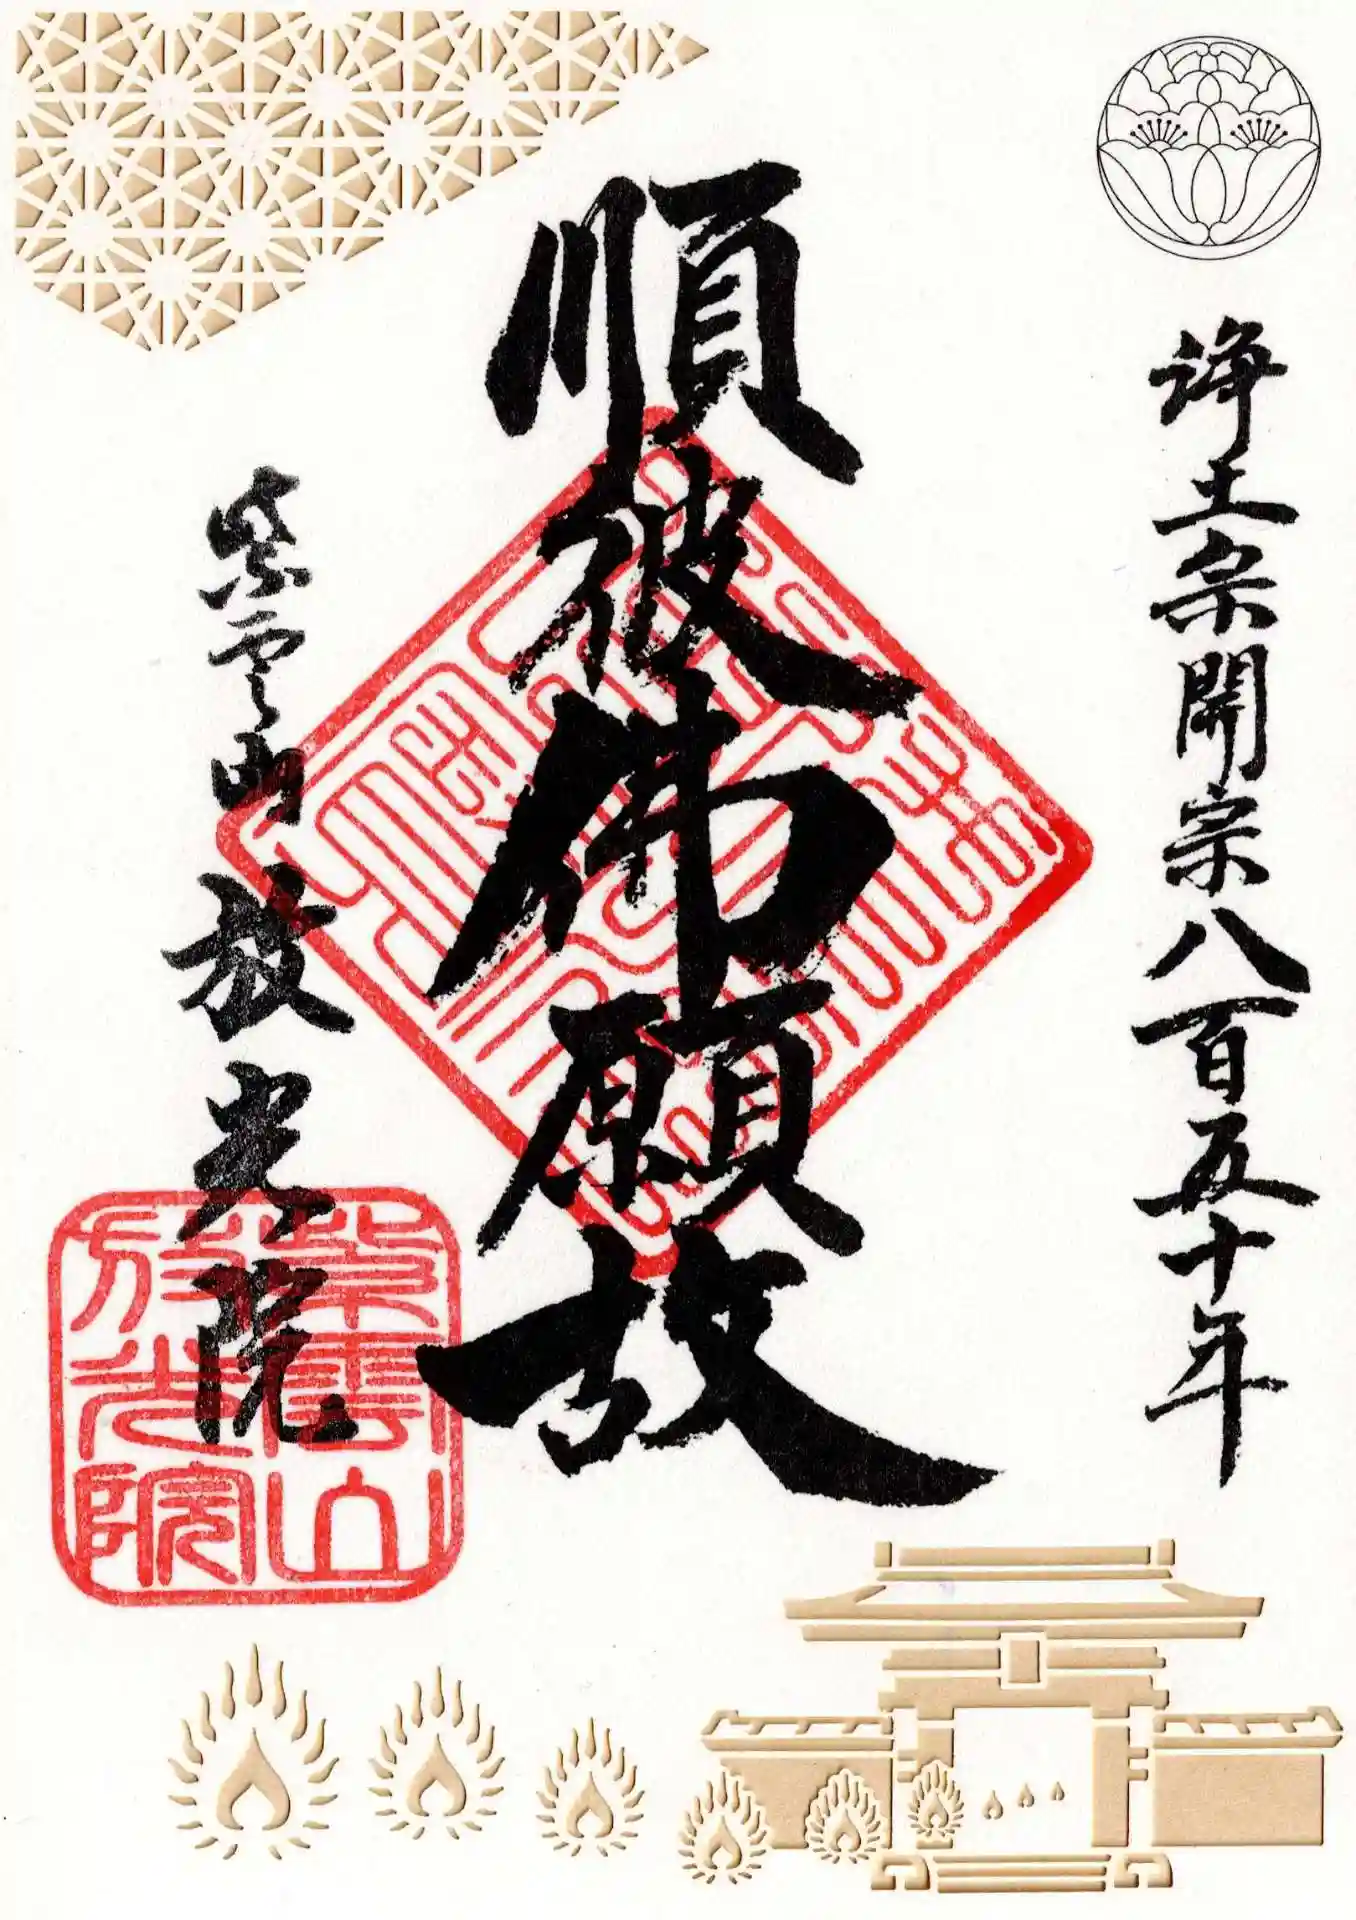 浄土宗開宗八百五十年
順彼佛願故
紫雲山 放光院
紫雲山
放光院